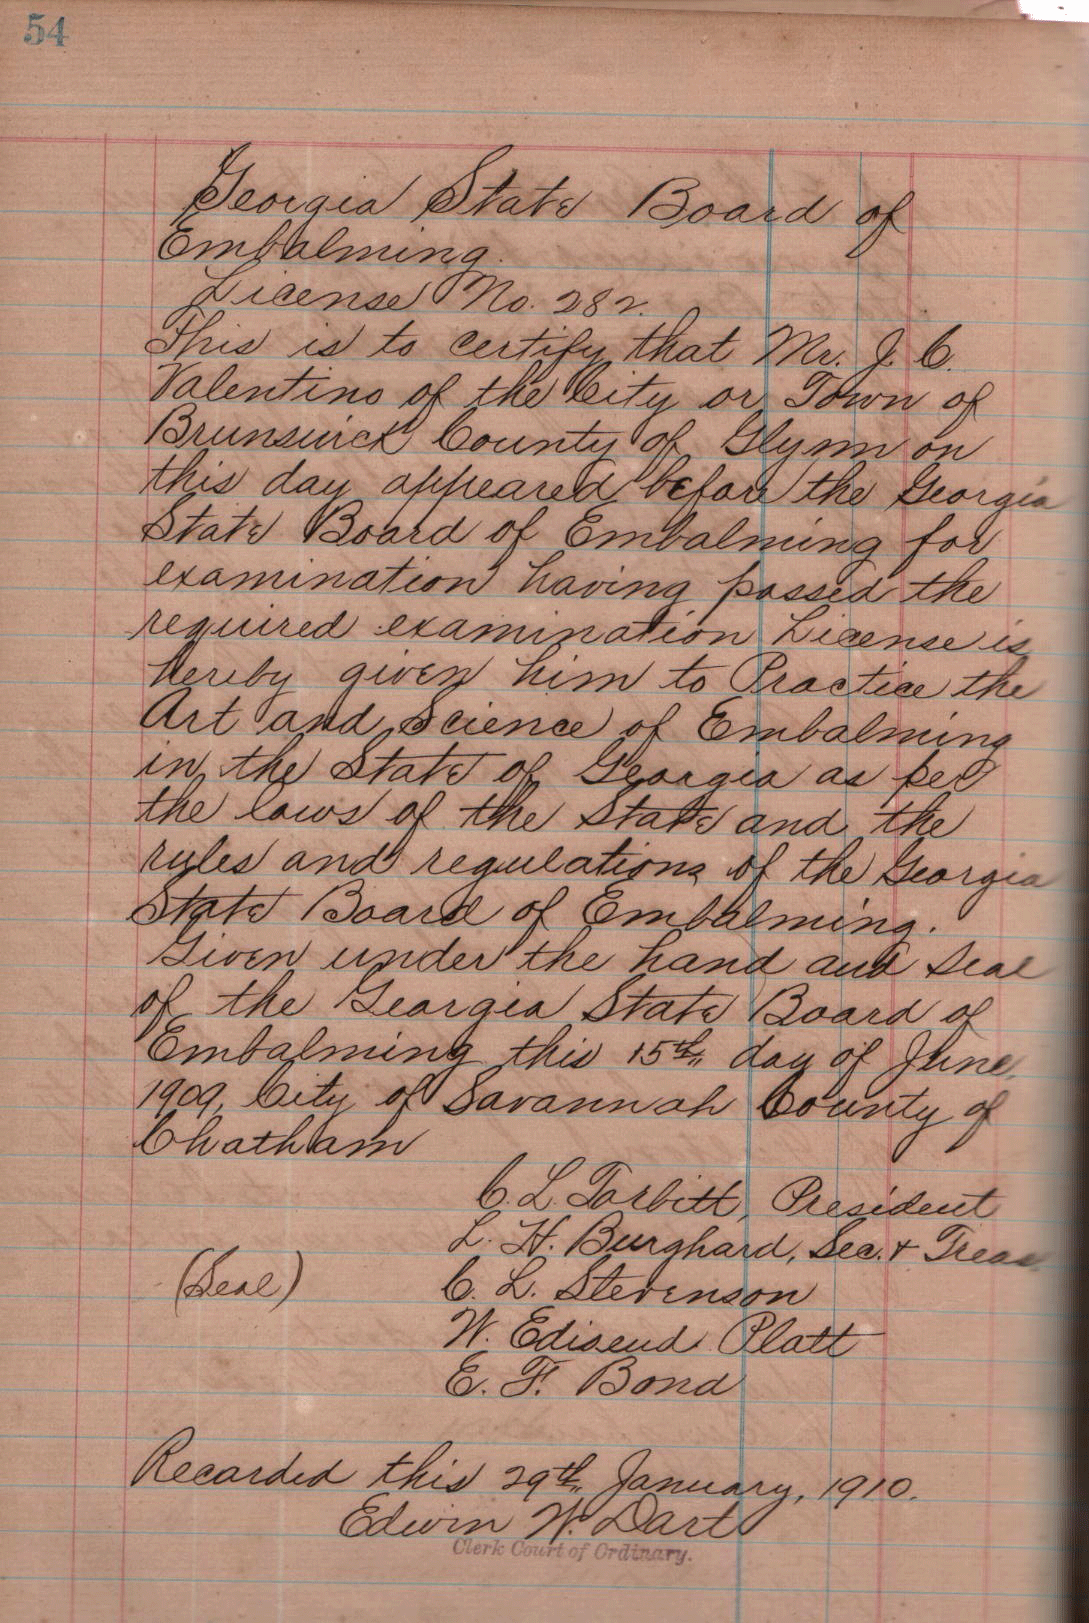 54
Georgia State Board of
Embalming.
License No. 282.
This is to certify that Mr. J. C.
Valentino of the City or Town of
Brunswick County of Glynn on
this day appeared before the Georgia
State Board of Embalming for
examination having passed the
required examination License is
hereby given him to Practice the
Art and Science of Embalming
in the State of Georgia as per
the laws of the State and the
rules and regulations of the Georgia
State Board of Embalming.
Given under the hand and seal
of the Georgia State Board of
Embalming this 15th day of June
1909, City of Savannah County of
Chatham
C. L. Torbitt, President
L. H. Burghard, Sec. & Treas
(Seal) C. L. Stevenson
W. Platt
E. F. Bond
Recorded this 29th January, 1910.
Edwin W. Dart
Clerk Court of Ordinary.